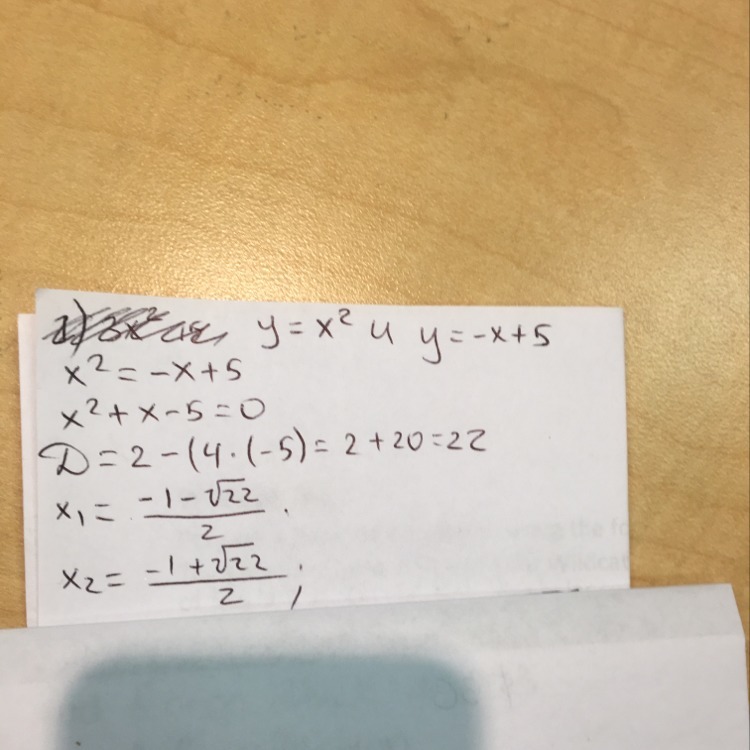 y = x² и y = -x+5
x² = -x+5
x² + x - 5 = 0
D = 2 - (4·(-5) = 2 + 20 = 22
x₁ = (-1 - √22)/2 .
x₂ = (-1 + √22)/2 ;